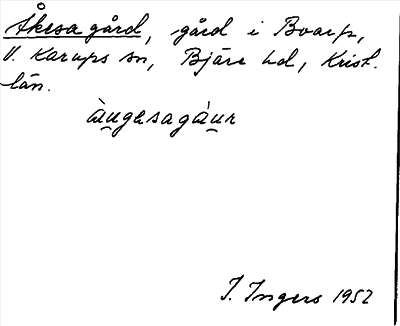 Åkesagård, gård i Boarp,
V. Karups sn, Bjäre hd, Krist.
län.
àu̯gesagáu̯r
I. Ingers 1952